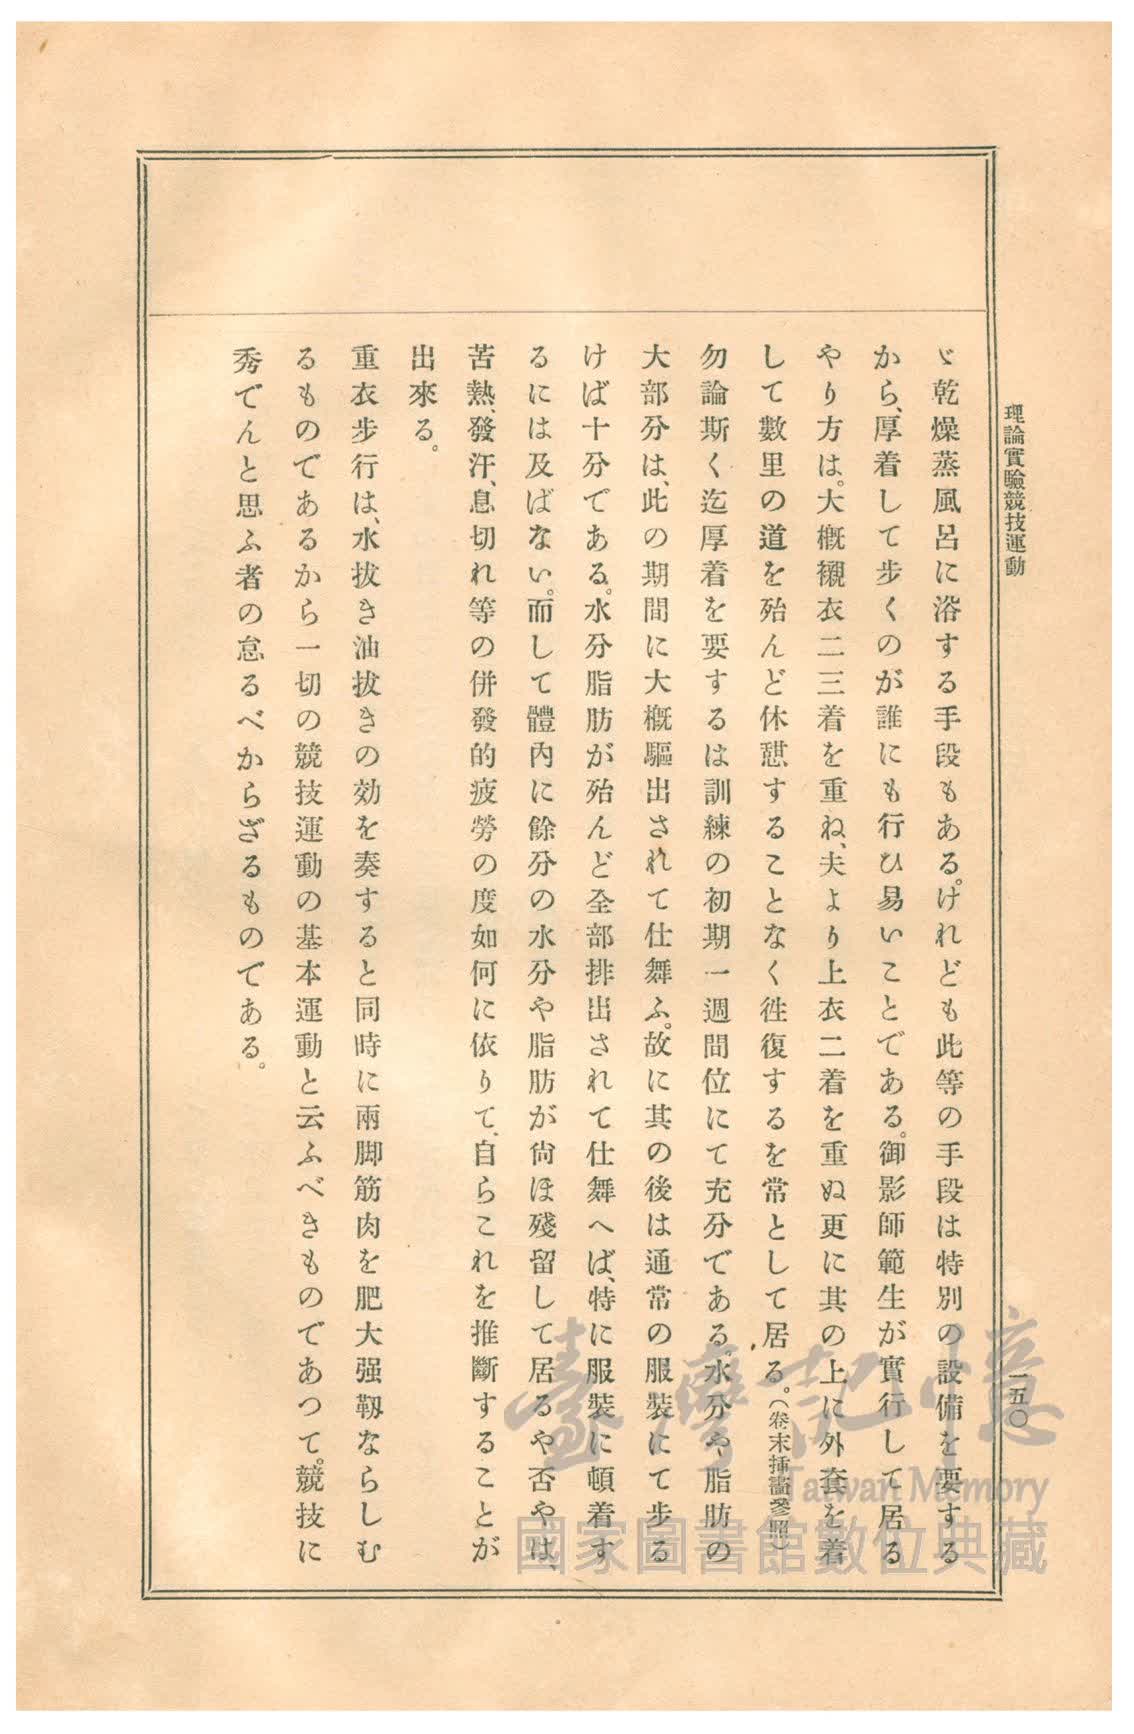 理論實驗競技運動
一五〇
ゞ乾燥蒸風呂に浴する手段もある。けれども此等の手段は特別の設備を要する
から、厚着して步くのが誰にも行ひ易いことである。御影師範生が實行して居る
やり方は。大概襯衣二三着を重ね、夫より上衣二着を重ぬ更に其の上に外套を着
して數里の道を殆んど休憇することなく徃復するを常として居る。(卷末挿畵參照)
勿論斯く迄厚着を要するは訓練の初期一週間位にて充分である。水分や脂肪の
大部分は、此の期間に大概驅出されて仕舞ふ。故に其の後は通常の服裝にて步る
けば十分である。水分脂肪が殆んど全部排出されて仕舞へば、特に服裝に頓着す
るには及ばない。而して體內に餘分の水分や脂肪が尙ほ殘留して居るや否やは、
苦熱、發汗、息切れ等の併發的疲勞の度如何に依りて、自らこれを推斷することが
出來る。
重衣步行は、水拔き油拔きの効を奏すると同時に兩脚筋肉を肥大强靱ならしむ
るものであるから一切の競技運動の基本運動と云ふべきものであつて。競技に
秀でんと思ふ者の怠るべからざるものである。
臺灣記憶
Taiwan Memory
國家圖書館數位典藏